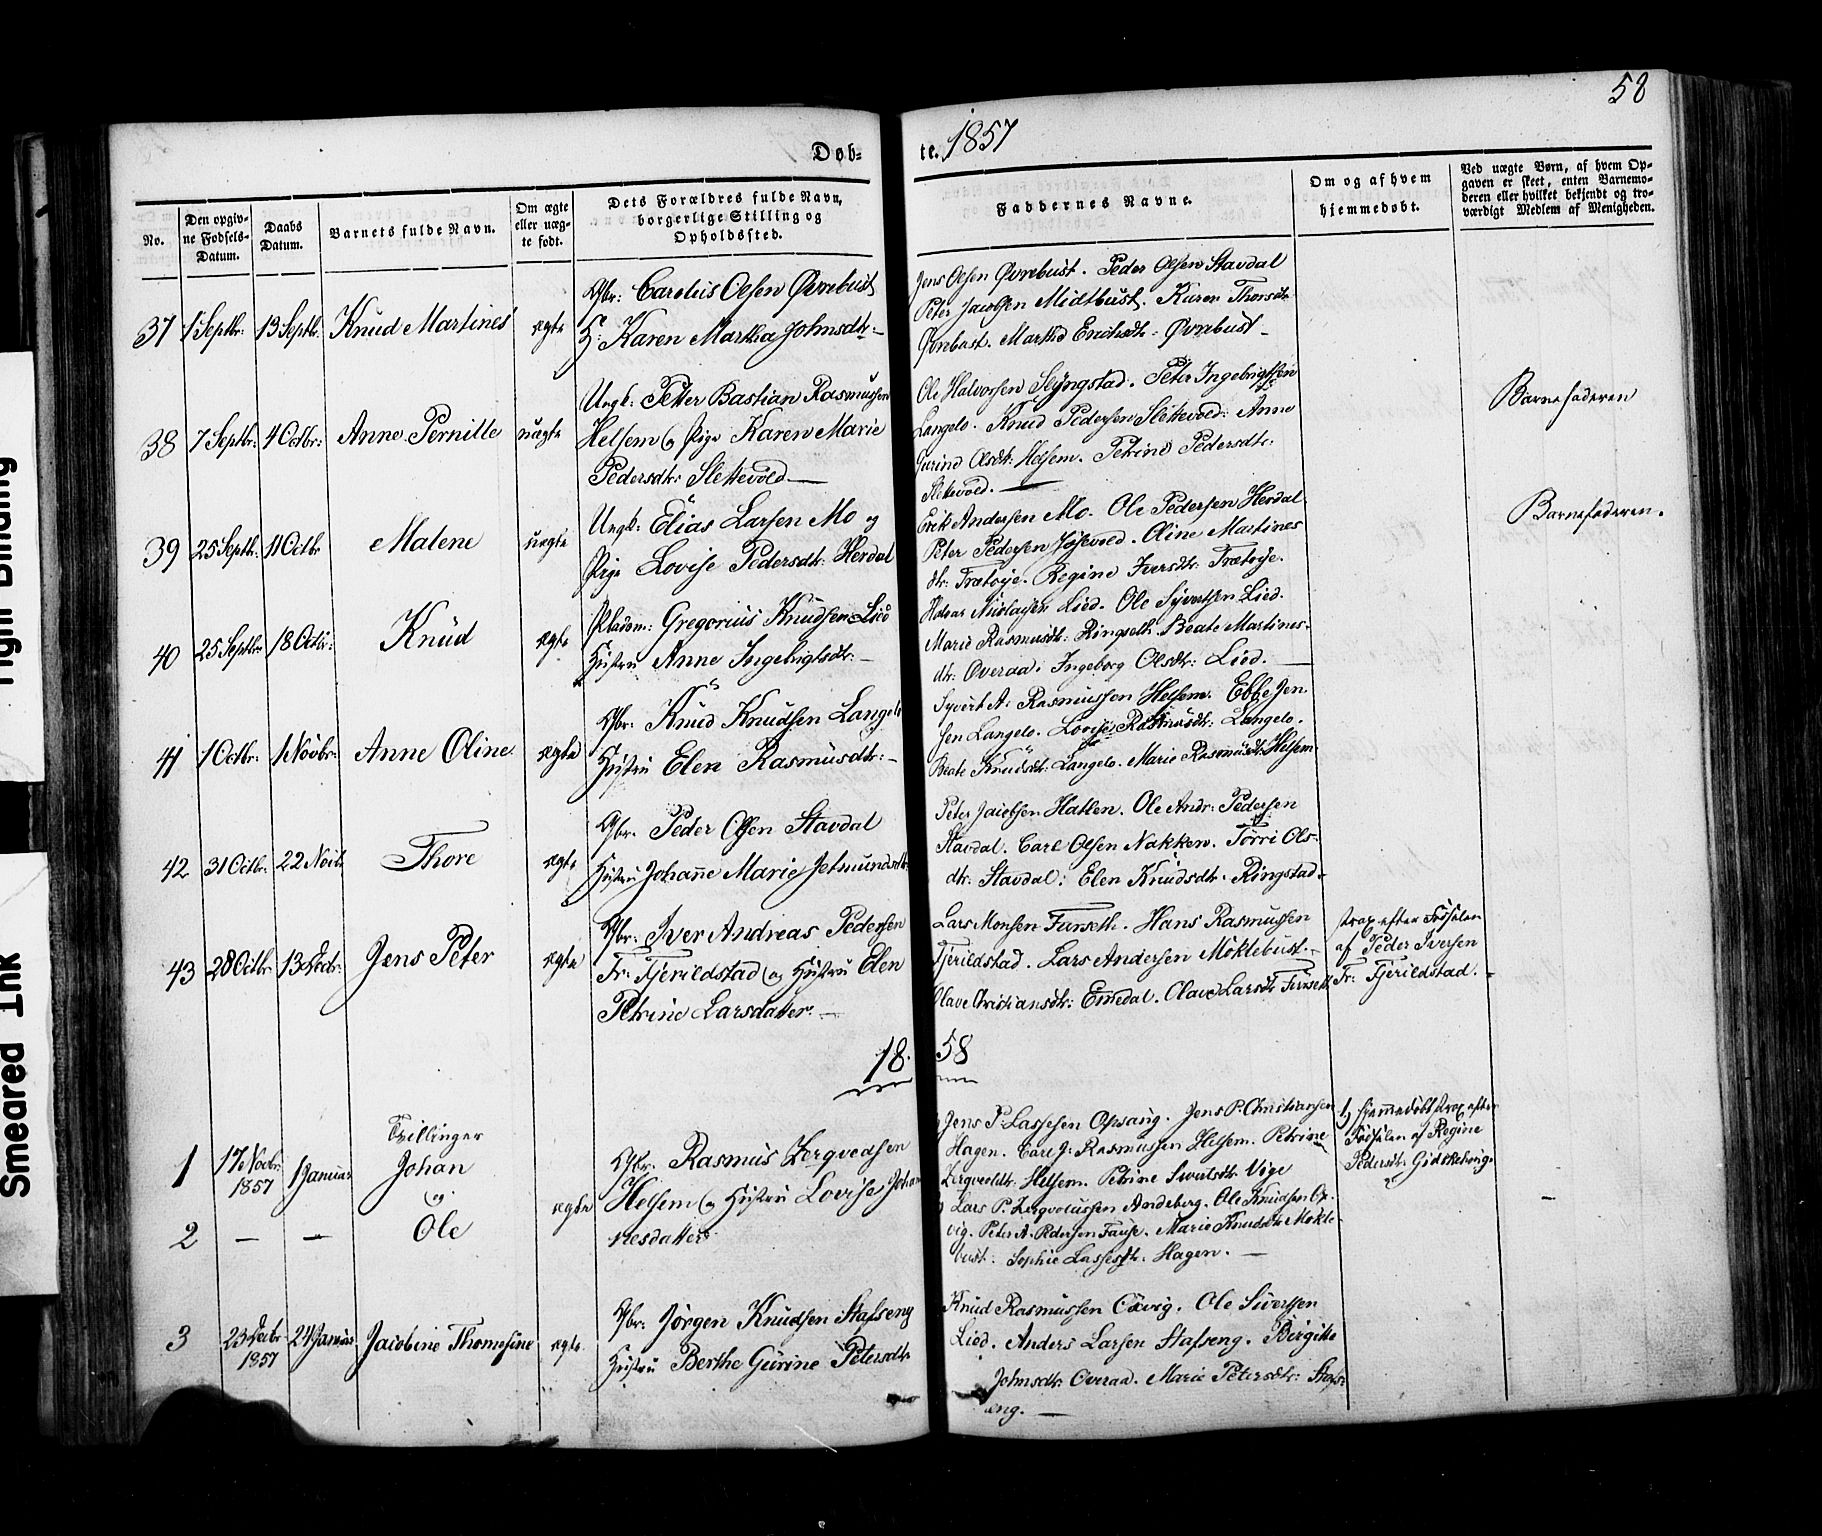 58
Døb-
te. 1857
No.
Den opgiv-
ne Fødsels-
Datum.
Daabs
Datum.
Barnets fulde Navn.
Om ægte
eller uæg-
te født.
Dets Forældres fulde Navn,
borgerlige Stilling og
Opholdssted.
Faddernes Navne.
Om og af hvem
hjemmedøbt.
Ved uægte Børn, af hvem Op-
gaven er skeet, enten Barnemo-
deren eller hvilket bekjendt og tro-
værdigt Medlem af Menigheden.
37 1 Septbr: 13 Septbr. Knud Martines ægte
Gbr: Carolus Olsen Øvrebust
H: Karen Martha Johnsdtr:
Jens Olsen Øvrebust. Peder Olsen Stavdal
Peter Jacobsen Midtbust. Karen Thorsdtr
Øvrebust. Marthe Erichsdtr: Øvrebust
38 7 Septbr: 4 Octbr: Anne Pernille uægte
Ungk: Petter Bastian Rasmussen
Helsem og Pige Karen Marie
Pedersdtr: Slettevold
Ole Halvorsen Slyngstad. Peter Ingebrigtsen
Langelo. Knud Pedersen Slettevold. Anne
Gurine Olsdtr: Helsem. Petrine Pedersdtr:
Slettevold.
Barnefaderen
39 25 Septbr: 11 Octbr Malene uægte
Ungk: Elias Larsen Mo og
Pige Lovise Pedersdtr: Herdal
Erik Andersen Mo. Ole Pedersen Herdal
Peter Pedersen. Oline Martines
dtr: Trætøje. Regine Iversdtr: Trætøje.
Barnefaderen.
40 25 Septbr 18 Octbr: Knud ægte
Pladsm: Gregorius Knudsen Lied
Hustru Anne Ingebrigtsdtr:
Nicolaisen Lied. Ole Syvertsen Lied.
Marie Rasmusdtr: Ringseth. Beate Martines-
dtr: Overaa. Ingeborg Olsdtr: Lied.
41 1 Octbr: 1 Novbr: Anne Oline ægte
Gbr: Knud Knudsen Langelo
Hustru Elen Rasmusdtr:
Syvert A: Rasmussen Helsem. Ebbe Jen-
sen Langelo. Lovise Rasmusdtr: Langelo.
Beate Knudsdtr: Langelo. Marie Rasmusdtr: Helsem
42 31 Octbr: 22 Novb: Thore ægte
Gbr: Peder Olsen Stavdal
Hustru Johanne Marie Jetmundsdtr
Peter Jacobsen Hatlen. Ole Andr: Pedersen
Stavdal. Carl Olsen Nakken. Torri Ols-
dtr: Stavdal: Elen Knudsdtr: Ringstad.
43 28 Octbr 13 Decbr: Jens Peter ægte
Gbr: Iver Andreas Pedersen
Fr: Fjerildstad og Hustru Elen
Petrine Larsdatter.
Lars Monsen Furseth. Hans Rasmussen
Fjerildstad. Lars Andersen Møklebust.
Olave Christiansdtr: Emdal. Olave Larsdtr Furseth
strax efter Fødselen
af Peder Iversen
Fr: Fjerildstad.
18 58
Tvillinger
1 17 Novbr: 1857 1 Januar Johan
og
2 — — Ole
ægte
Gbr: Rasmus Zerqvedsen
Helsem og Hustru Lovise Johan
nesdatter
Jens P. Lassesen Opsang. Jens P. Christiansen
Hagen. Carl J: Rasmussen Helsem. Petrine
Helsem. Petrine Sivertsdtr Vige
Lars P. Andeberg. Ole Knudsen Ox
vig. Peter A. Pedersen Fause. Marie Knudsdtr Møkle-
bust. Sophie Lassesdtr. Hagen.
1) hjemmedøbt strax efter
Fødselen af Regine
Pedersdtr: Gidskehoug.
3 23 Decbr 1857 24 Januar Jacobine Thomesine ægte
Gbr: Jørgen Knudsen Stafseng
Hustru Berthe Gurine Petersdtr
Knud Rasmussen Oxvig. Ole Siversen
Lied. Anders Larsen Stafseng. Birgitte
Johnsdtr: Overaa. Marie Petersdtr: Stafs-
eng.
Tight Binding
Smeared Ink